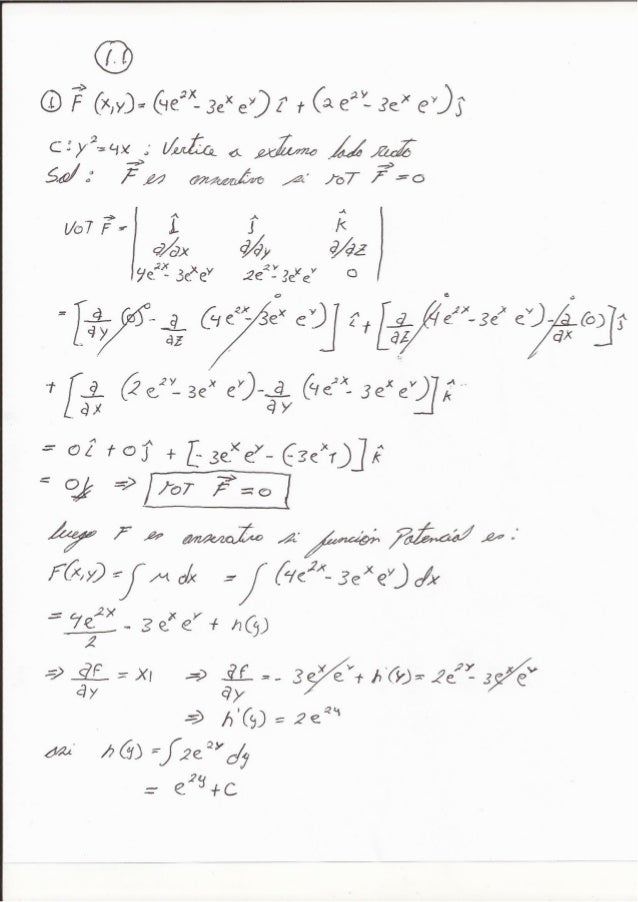 1.1
① F⃗ (x,y) = (4e^{2x} - 3e^x e^y) î + (2e^{2y} - 3e^x e^y) ĵ
C: y² = 4x ; Vertice a extremo lado recto
Sol : F⃗ es conservativo si roT F⃗ = 0
roT F⃗ = | î ĵ k̂ |
| ∂/∂x ∂/∂y ∂/∂z |
| 4e^{2x} - 3e^x e^y 2e^{2y} - 3e^x e^y 0 |
= [∂/∂y (0) - ∂/∂z (4e^{2x} - 3e^x e^y)] î + [∂/∂z (4e^{2x} - 3e^x e^y) - ∂/∂x (0)] ĵ
+ [∂/∂x (2e^{2y} - 3e^x e^y) - ∂/∂y (4e^{2x} - 3e^x e^y)] k̂
= 0î + 0ĵ + [-3e^x e^y - (-3e^x r)] k̂
= 0k ⇒ roT F⃗ = 0
luego F es conservativo si función Potencial es :
F(x,y) = ∫ M dx = ∫ (4e^{2x} - 3e^x e^y) dx
= 4e^{2x}/2 - 3e^x e^y + h(y)
⇒ ∂F/∂y = XI ⇒ ∂F/∂y = -3e^x e^y + h'(y) = 2e^{2y} - 3e^x e^y
⇒ h'(y) = 2e^{2y}
asi h(y) = ∫ 2e^{2y} dy
= e^{2y} + C